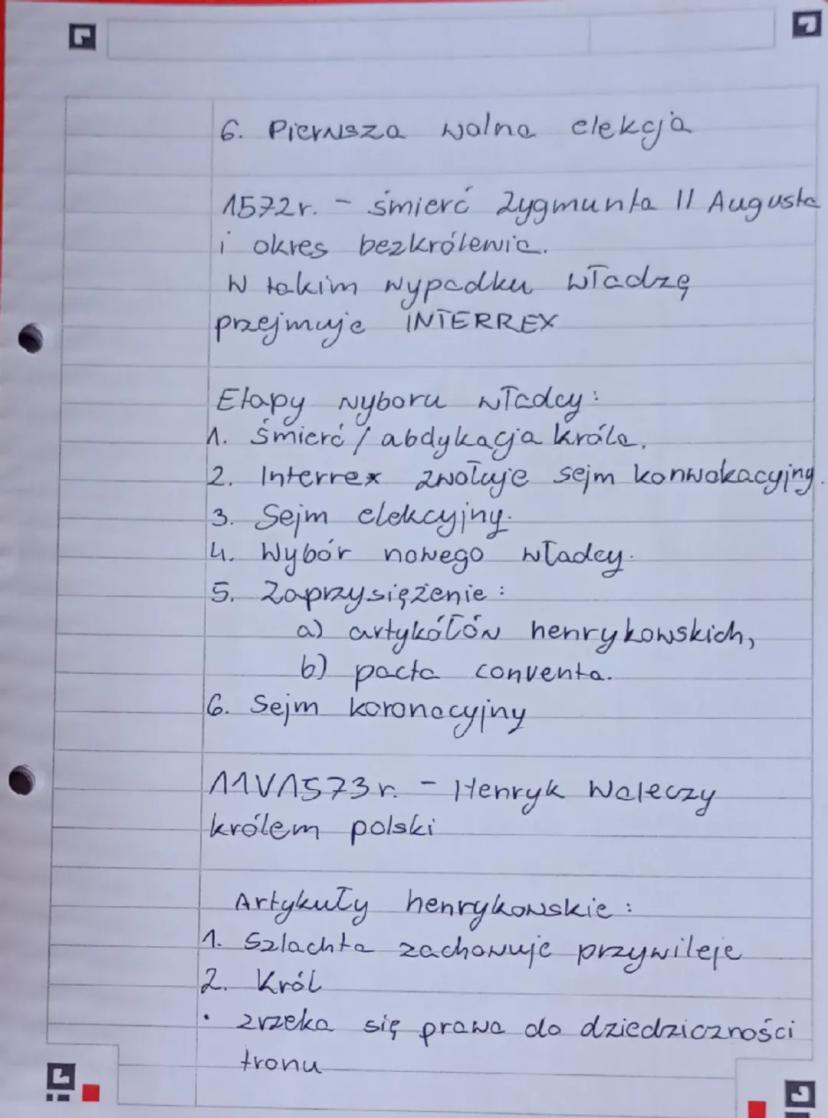 6. Pierwsza wolna elekcja
1572r. - śmierć Zygmunta II Augusta
i okres bezkrólewia.
W takim wypadku władzę
przejmuje INTERREX
Etapy wyboru władcy:
1. Śmierć / abdykacja króla.
2. Interrex zwołuje sejm konwokacyjny.
3. Sejm elekcyjny.
4. Wybór nowego władcy.
5. Zaprzysiężenie:
a) artykółów henrykowskich,
b) pacta conventa.
6. Sejm koronacyjny
11V1573r. - Henryk Waleczy
królem polski
Artykuły henrykowskie:
1. Szlachta zachowuje przywileje
2. Król
• zrzeka się prawa do dziedziczności
tronu